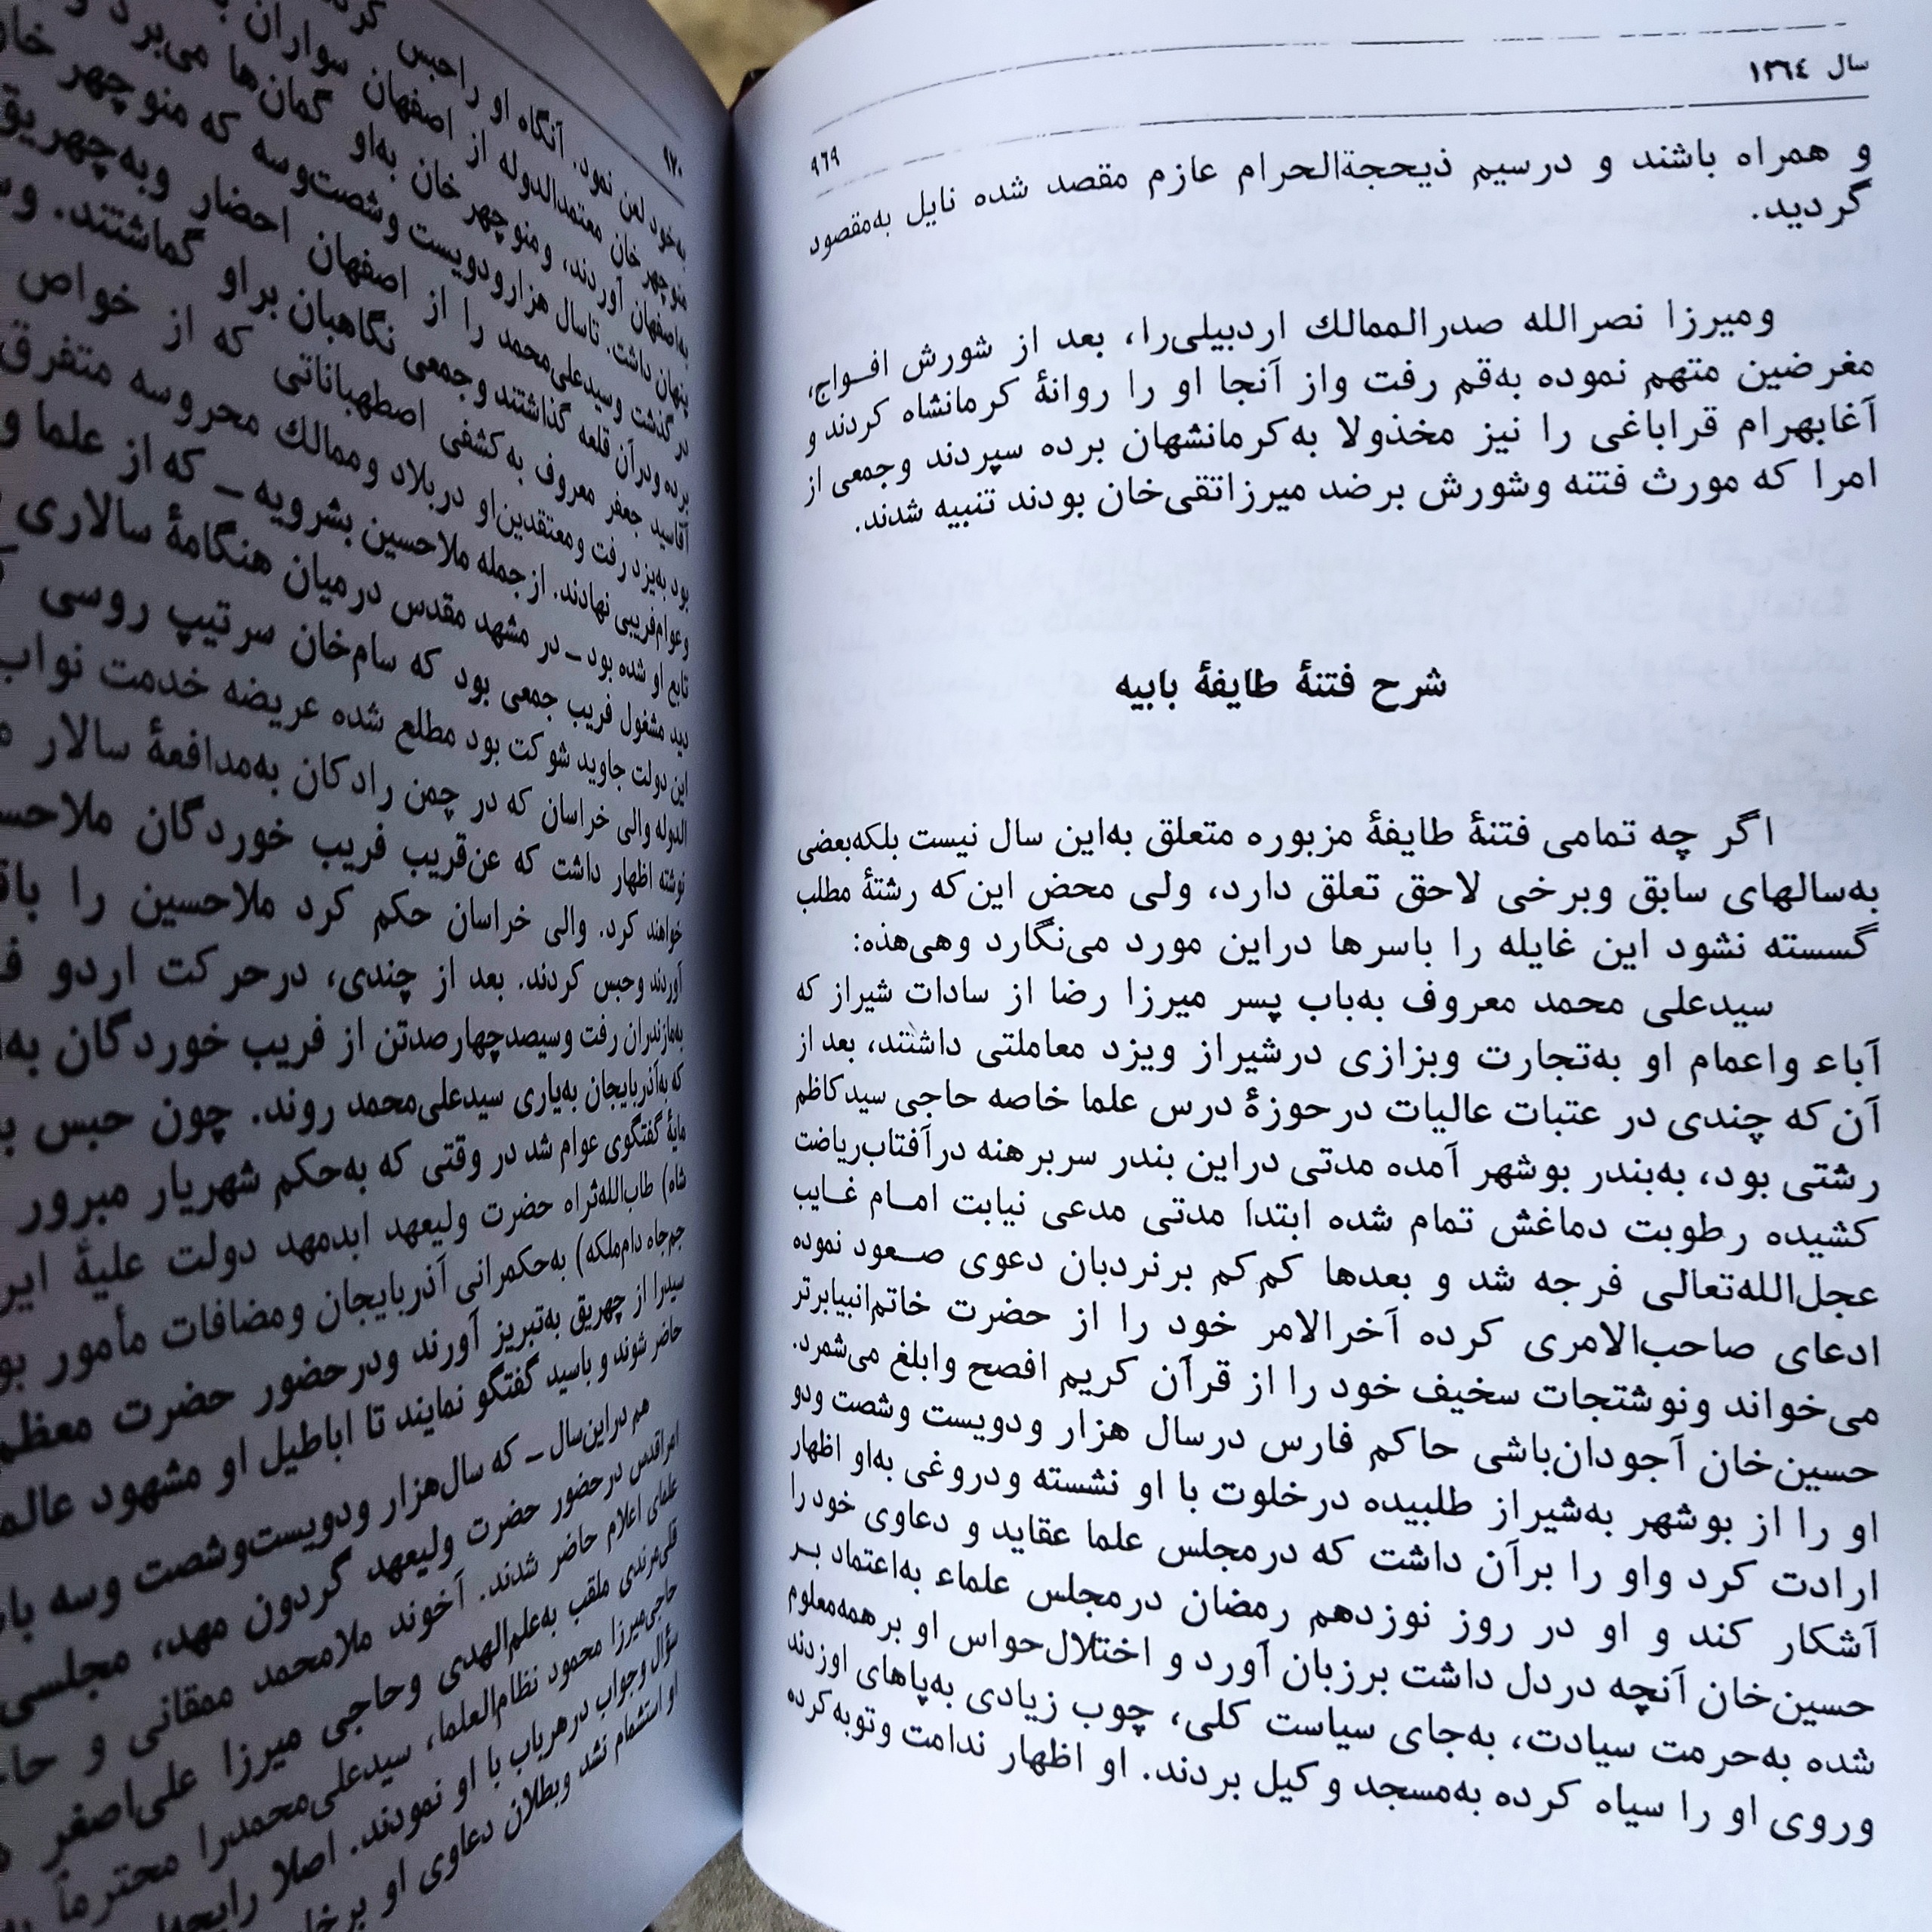 سال ۱۲٦٤
۹٦۹
و همراه باشند و درسیم ذیحجةالحرام عازم مقصد شده نایل به‌مقصود
گردید.
ومیرزا نصرالله صدرالممالك اردبیلی‌را، بعد از شورش افــواج،
مغرضین متهم نموده به‌قم رفت واز آنجا او را روانهٔ کرمانشاه کردند و
آغابهرام قراباغی را نیز مخذولا به‌کرمانشهان برده سپردند وجمعی از
امرا که مورث فتنه وشورش برضد میرزاتقی‌خان بودند تنبیه شدند.
شرح فتنهٔ طایفهٔ بابیه
اگر چه تمامی فتنهٔ طایفهٔ مزبوره متعلق به‌این سال نیست بلکه‌بعضی
به‌سالهای سابق وبرخی لاحق تعلق دارد، ولی محض این‌که رشتهٔ مطلب
گسسته نشود این غایله را باسرها دراین مورد می‌نگارد وهی‌هذه:
سیدعلی محمد معروف به‌باب پسر میرزا رضا از سادات شیراز که
آباء واعمام او به‌تجارت وبزازی درشیراز ویزد معاملتی داشتند، بعد از
آن‌که چندی در عتبات عالیات درحوزهٔ درس علما خاصه حاجی سیدکاظم
رشتی بود، به‌بندر بوشهر آمده مدتی دراین بندر سربرهنه درآفتاب‌ریاضت
کشیده رطوبت دماغش تمام شده ابتدا مدتی مدعی نیابت امــام غــایب
عجل‌الله‌تعالی فرجه شد و بعدها کم‌کم برنردبان دعوی صــعود نموده
ادعای صاحب‌الامری کرده آخرالامر خود را از حضرت خاتم‌انبیابرتر
می‌خواند ونوشتجات سخیف خود را از قرآن کریم افصح وابلغ می‌شمرد.
حسین‌خان آجودان‌باشی حاکم فارس درسال هزار ودویست وشصت ودو
او را از بوشهر به‌شیراز طلبیده درخلوت با او نشسته ودروغی به‌او اظهار
ارادت کرد واو را برآن داشت که درمجلس علما عقاید و دعاوی خود را
آشکار کند و او در روز نوزدهم رمضان درمجلس علماء به‌اعتماد بــر
حسین‌خان آنچه دردل داشت برزبان آورد و اختلال‌حواس او برهمه‌معلوم
شده به‌حرمت سیادت، به‌جای سیاست کلی، چوب زیادی به‌پاهای اوزدند
وروی او را سیاه کرده به‌مسجد وکیل بردند. او اظهار ندامت وتوبه‌کرده
۹۷۰
به‌خود لعن نمود. آنگاه او راحبس
منوچهرخان معتمدالدوله از اصفهان سواران
به‌اصفهان آوردند، ومنوچهرخان به‌او گمان‌ها می‌برد
پنهان داشت. تاسال هزارودویست وشصت‌وسه که منوچهر
درگذشت وسیدعلی‌محمد را از اصفهان احضار وبه‌چهریق
برده ودرآن قلعه گذاشتند وجمعی نگاهبان براو گماشتند.
آقاسید جعفر معروف به‌کشفی اصطهباناتی که از خواص
بود به‌یزد رفت ومعتقدین‌او دربلاد وممالك محروسه متفرق
وعوام‌فریبی نهادند. ازجمله ملاحسین بشرویه ـ که از علما و
تابع او شده بود ـ در مشهد مقدس درمیان هنگامهٔ سالاری
دید مشغول فریب جمعی بود که سام‌خان سرتیپ روسی
این دولت جاوید شوکت بود مطلع شده عریضه خدمت نواب
الدوله والی خراسان که در چمن رادکان به‌مدافعهٔ سالار
نوشته اظهار داشت که عن‌قریب فریب خوردگان
خواهند کرد. والی خراسان حکم کرد ملاحسین را
آوردند وحبس کردند. بعد از چندی، درحرکت اردو
به‌مازندران رفت وسیصدچهارصدتن از فریب خوردگان
که به‌آذربایجان به‌یاری سیدعلی‌محمد روند. چون حبس
مایهٔ گفتگوی عوام شد در وقتی که به‌حکم شهریار مبرور
شاه) طاب‌الله‌ثراه حضرت ولیعهد ابدمهد دولت علیهٔ
جم‌جاه دام‌ملکه) به‌حکمرانی آذربایجان ومضافات مأمور
سیدرا از چهریق به‌تبریز آورند ودرحضور حضرت
حاضر شوند و باسید گفتگو نمایند تا اباطیل او مشهود
هم دراین‌سال ـ که سال‌هزار ودویست‌وشصت وسه
امراقدس درحضور حضرت ولیعهد گردون مهد، مجلسی
علمای اعلام حاضر شدند. آخوند ملامحمد ممقانی و
قلی‌مرندی ملقب به‌علم‌الهدی وحاجی میرزا علی‌اصغر
حاجی‌میرزا محمود نظام‌العلما، سیدعلی‌محمدرا محترماً
سؤال وجواب درهرباب با او نمودند. اصلا
او استشمام نشد وبطلان دعاوی او